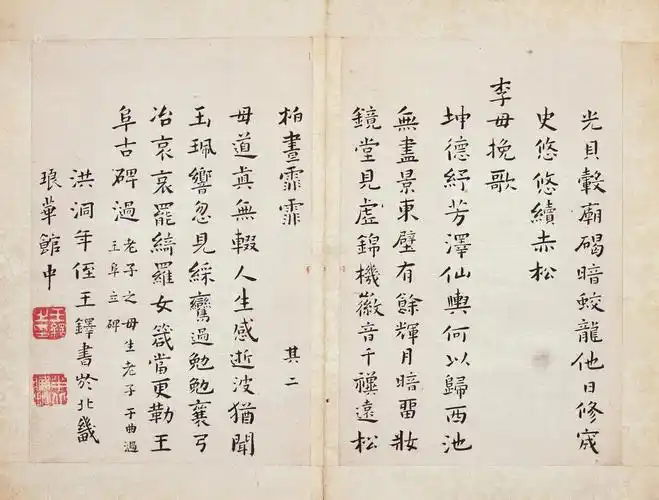 光貝轂廟碣暗蛟龍他日修宬
史悠悠續赤松
李母挽歌
坤德紓芳澤仙輿何以歸西池
無盡景東壁有餘輝月暗留妝
鏡堂見虛錦機徽音千禩遠松
柏晝霏霏
其二
母道真無輟人生感逝波猶聞
玉珮響忽見綵鸞過勉勉襄弓
冶哀哀罷綺羅女箴當更勒王
阜古碑過
老子之母生老子于曲過
王阜立碑
洪洞年侄王鐸書於北畿
琅華館中
王鐸之